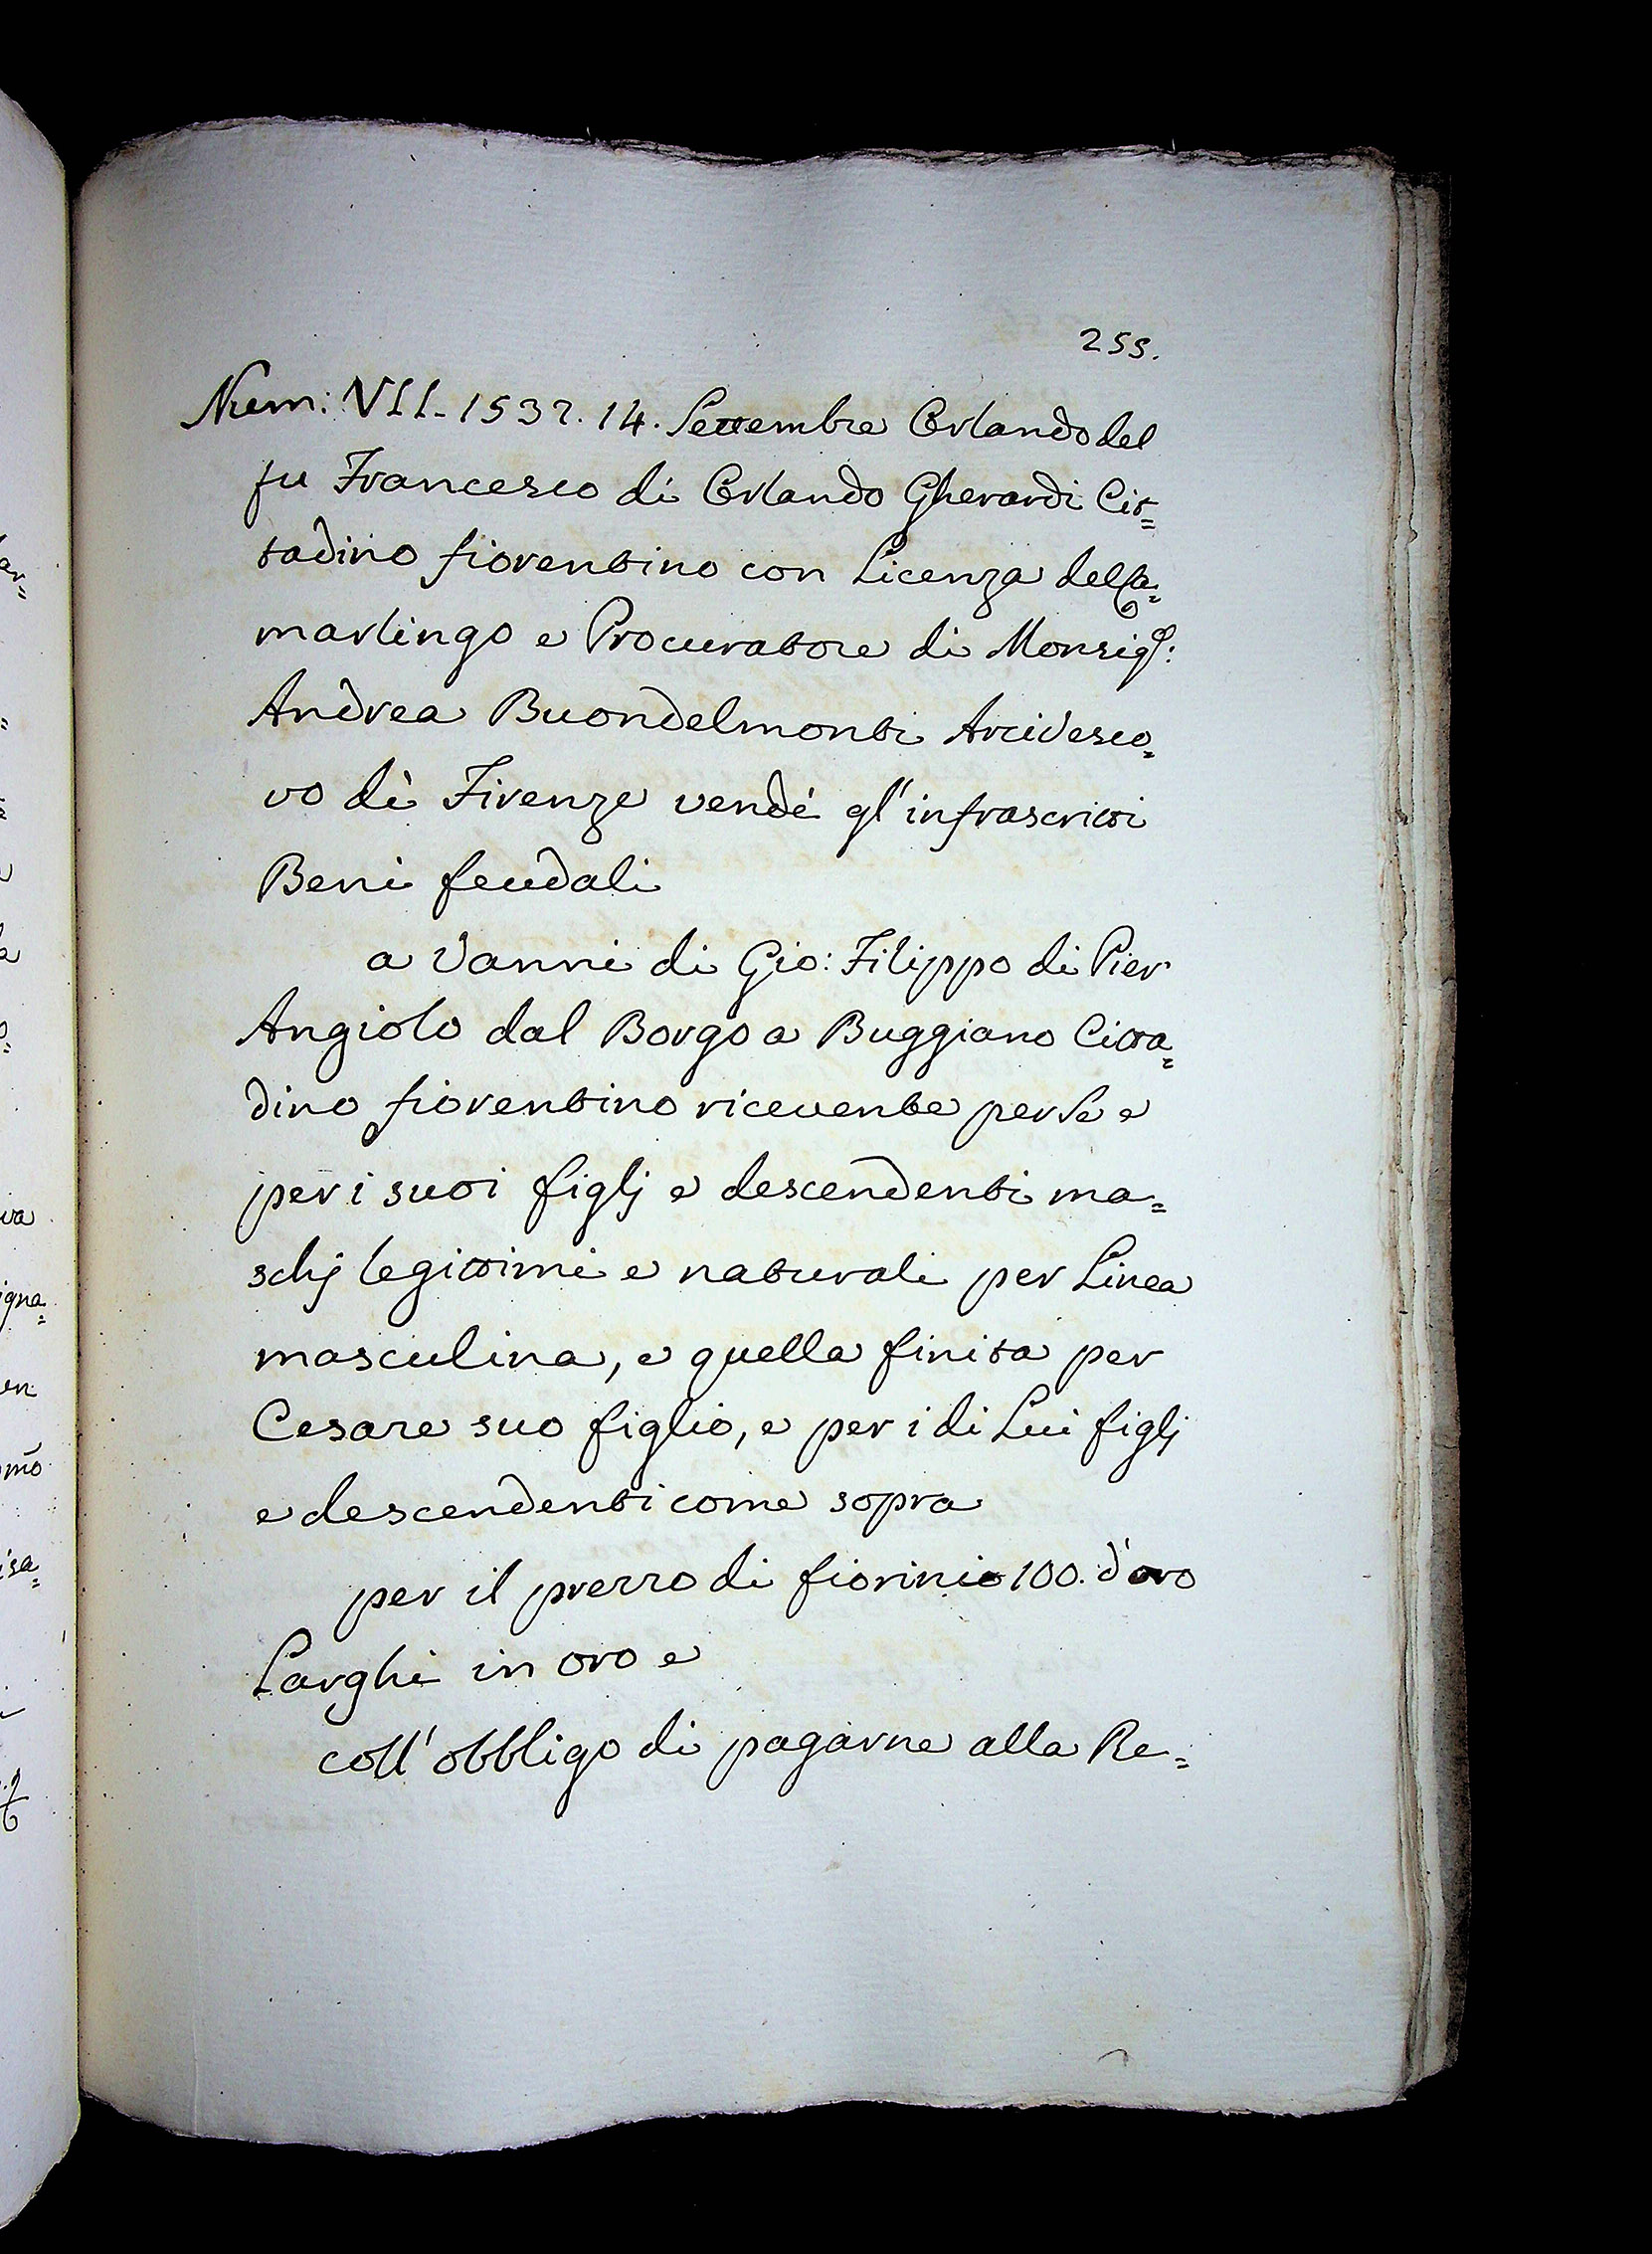 255.
Num: VII. 1537. 14. Settembre Orlando del
fu Francesco di Orlando Gherardi Cit=
tadino fiorentino con Licenza del Ca=
marlingo e Procuratore di Monsig.:
Andrea Buondelmonti Arcivesco=
vo di Firenze vendè gl'infrascritti
Beni feudali
a Vanni di Gio: Filippo di Pier
Angiolo dal Borgo a Buggiano Citta=
dino fiorentino ricevente per se e
per i suoi figlj e descendenti ma=
schj legittimi e naturali per Linea
masculina, e quella finita per
Cesare suo figlio, e per i di Lui figlj
e descendenti come sopra
per il prezzo di fiorini 100. d'oro
Larghi in oro e
coll'obbligo di pagarne alla Re=